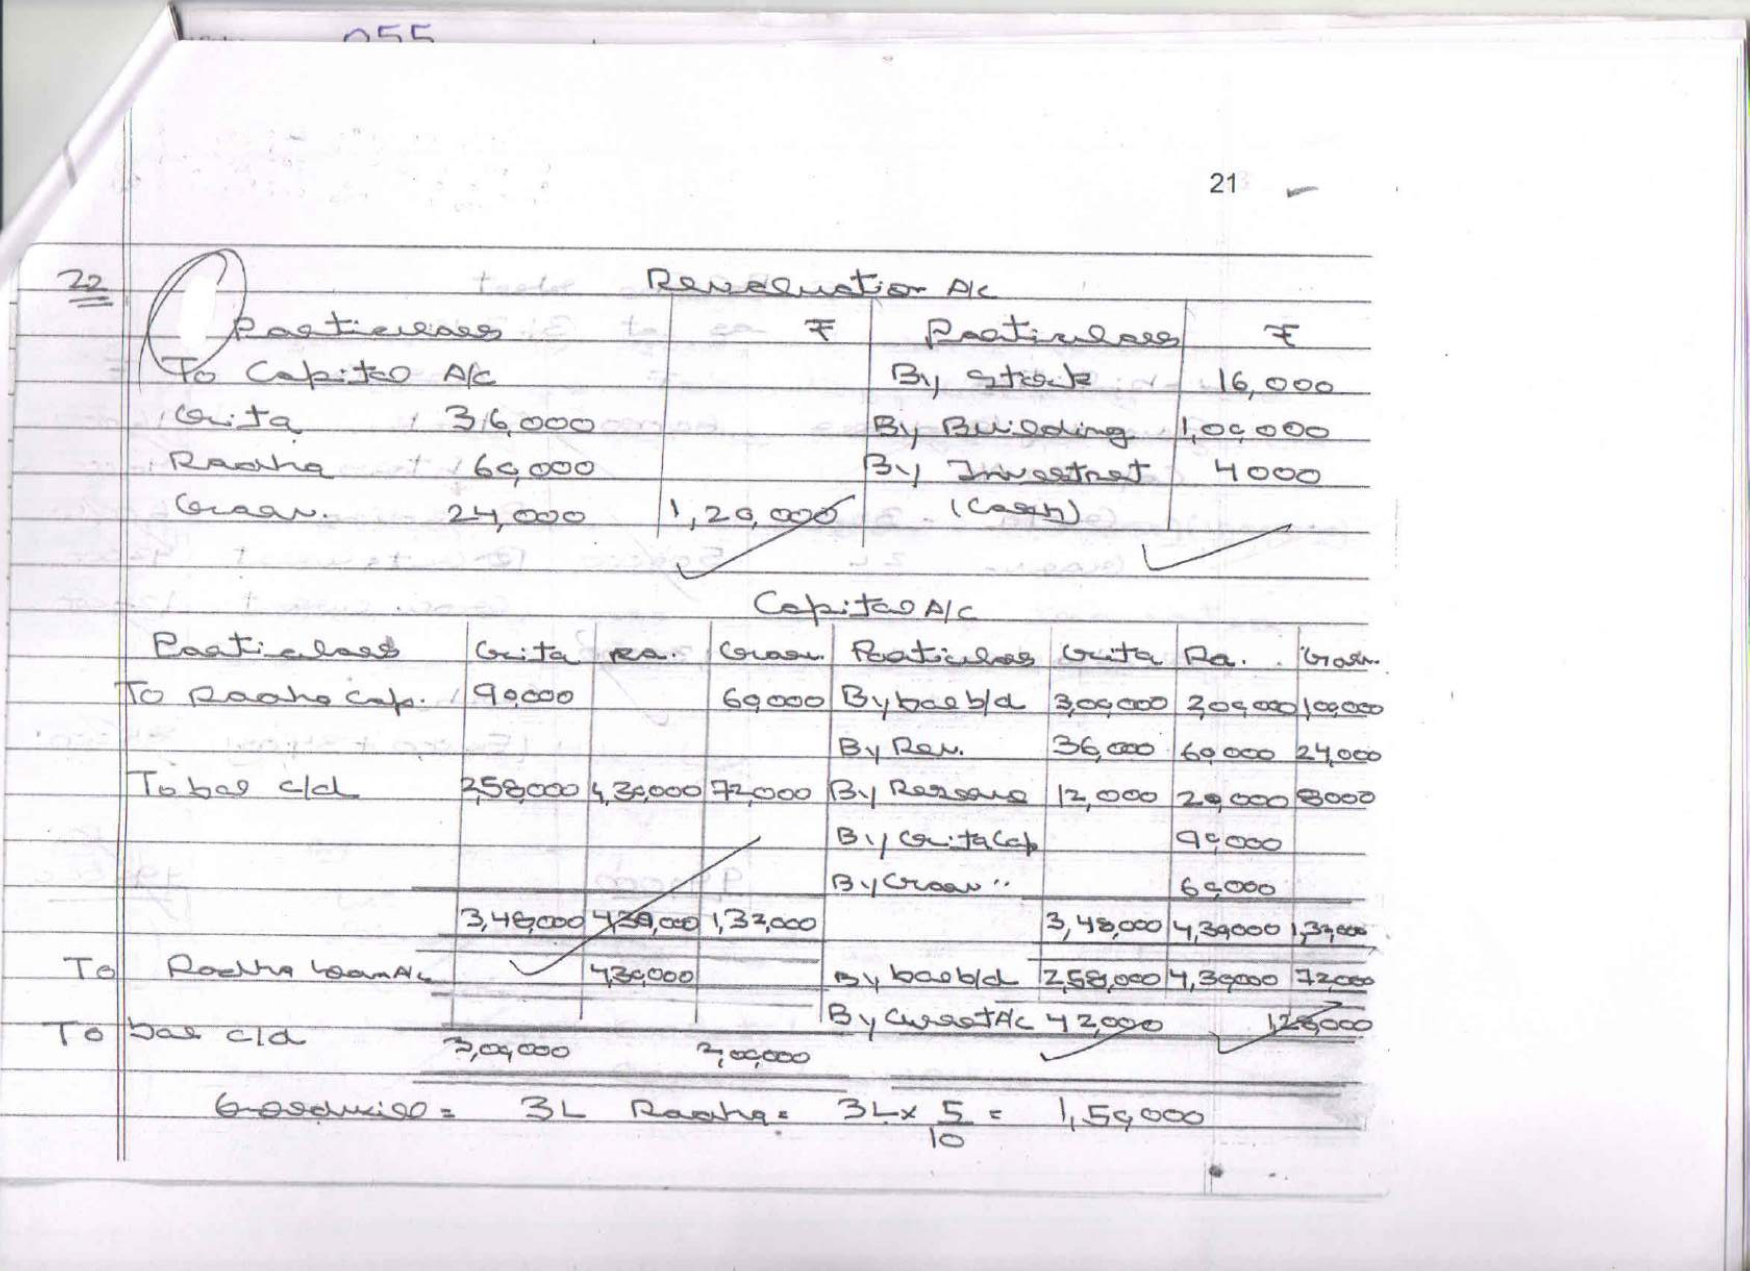 055
21
22
Revaluation A/c
Particulars ₹ Particulars ₹
To Capital A/c By Stock 16,000
Gita 36,000 By Building 1,00,000
Radha 60,000 By Investmet 4000
Garv. 24,000 1,20,000 (Cash)
Capital A/c
Particulars Gita Ra. Garv. Particulars Gita Ra. Garv.
To Radha Cap. 90,000 60,000 By bal b/d 3,00,000 2,00,000 1,00,000
By Rev. 36,000 60,000 24,000
To bal c/d 2,58,000 4,30,000 72,000 By Reserve 12,000 20,000 8000
By Gita Cap 90,000
By Garv " 60,000
3,48,000 4,30,000 1,32,000 3,48,000 4,30,000 1,32,000
To Radha Loan A/c 4,30,000 By bal b/d 2,58,000 4,30,000 72,000
By Current A/c 42,000 1,28,000
To bal c/d 3,00,000 2,00,000
Goodwill = 3L Radha = 3L x 5/10 = 1,50,000